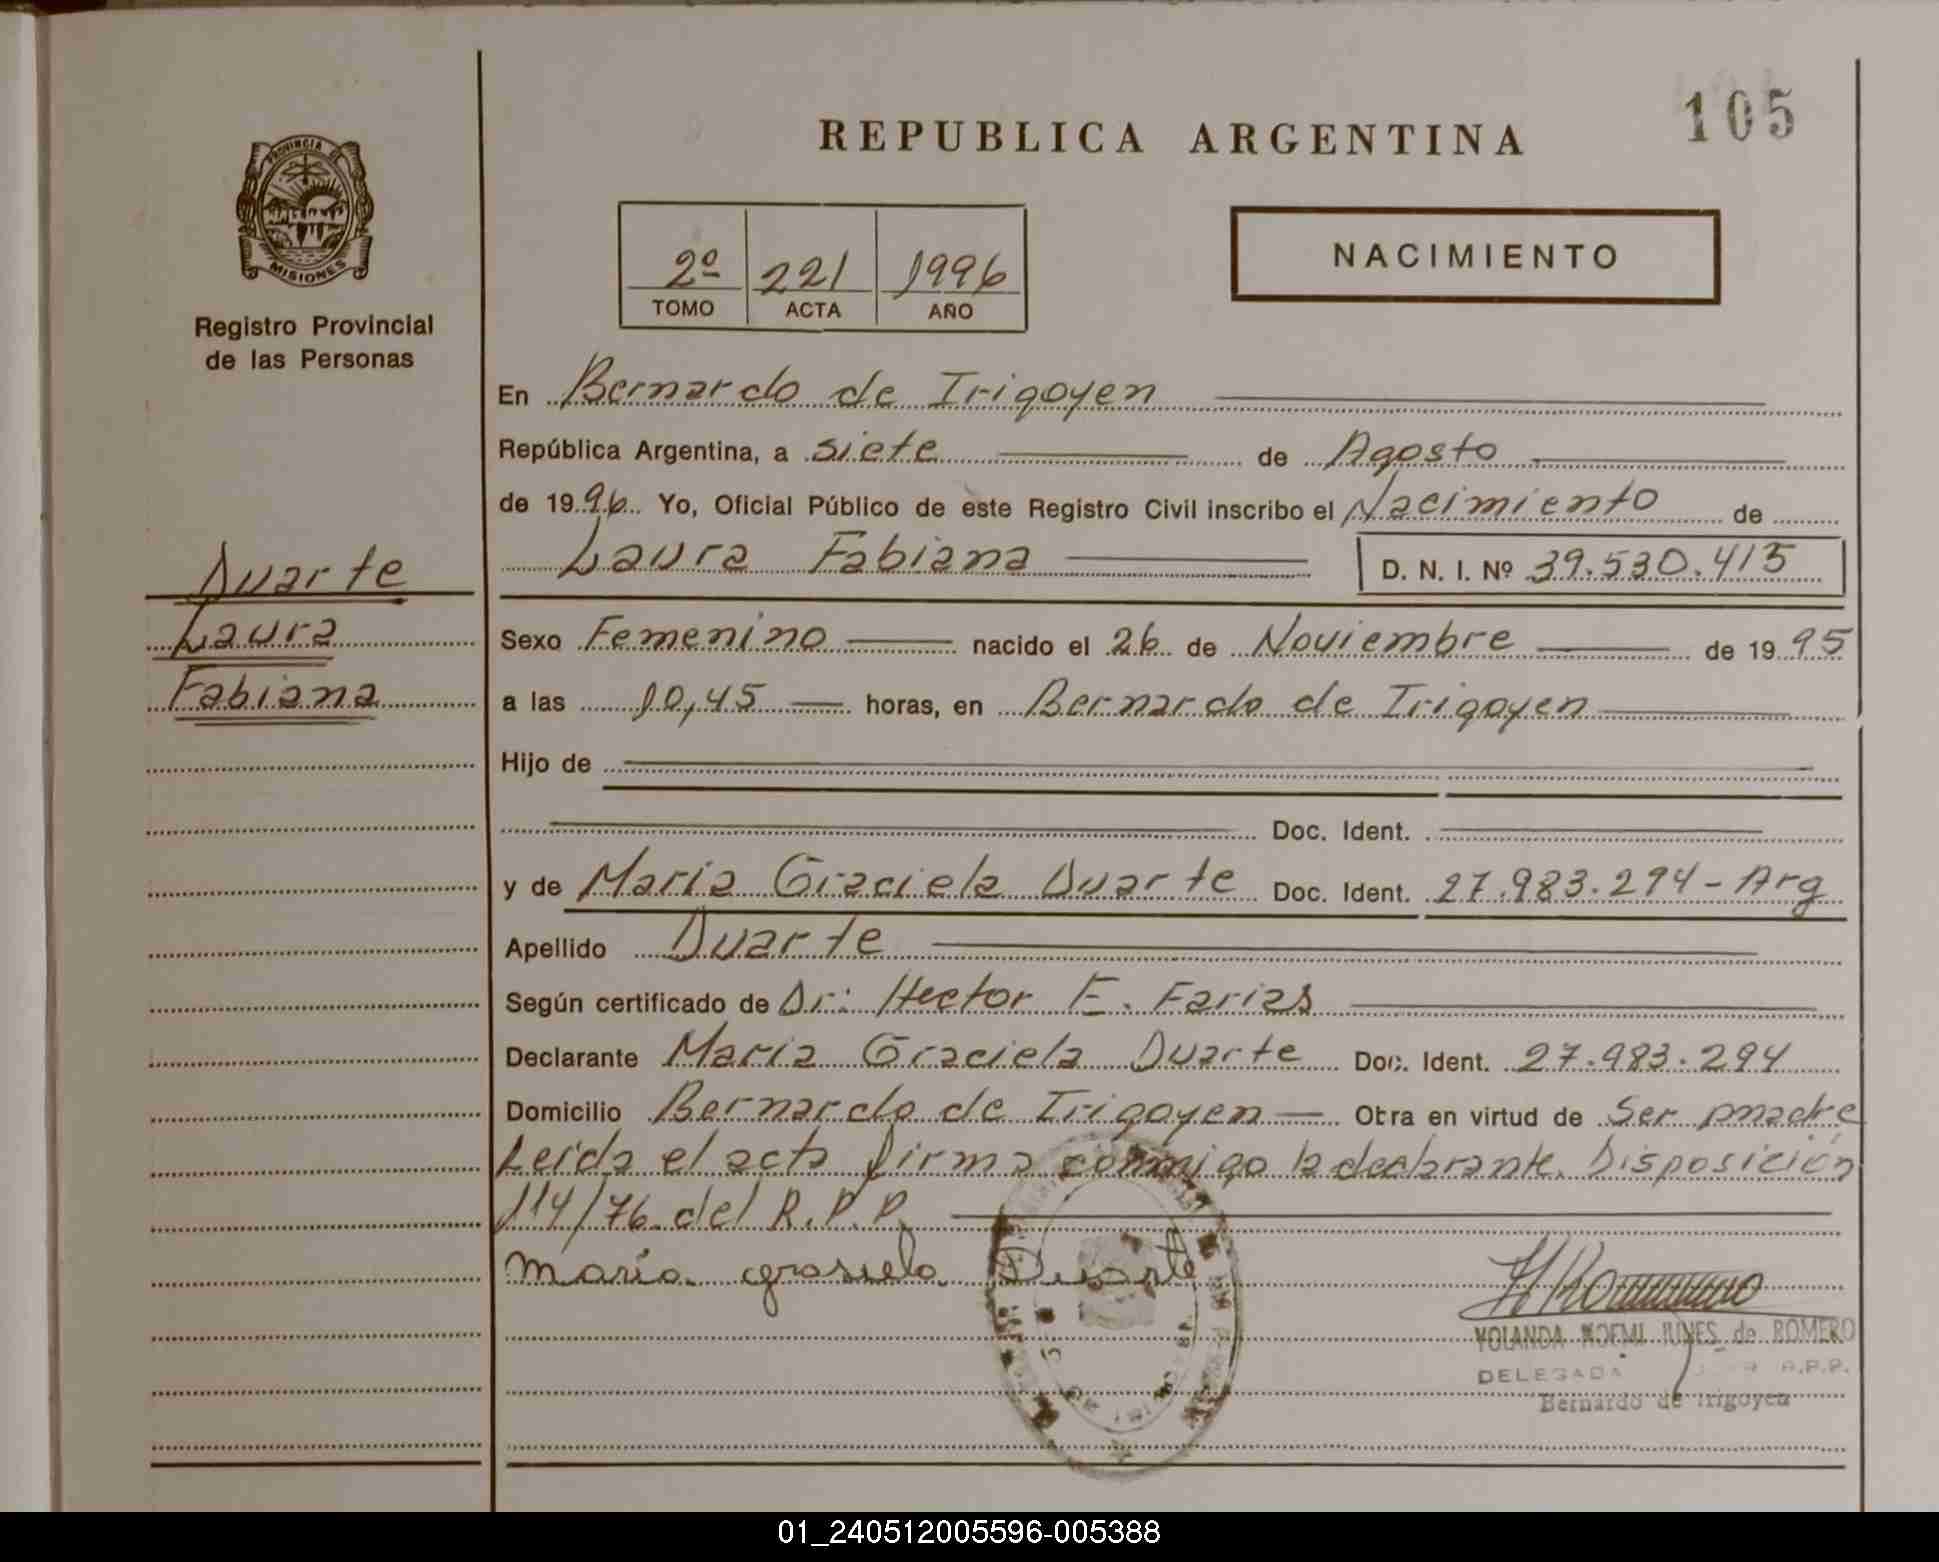 105
REPUBLICA ARGENTINA
PROVINCIA DE
MISIONES
Registro Provincial
de las Personas
2º 221 1996
TOMO ACTA AÑO
NACIMIENTO
En Bernardo de Irigoyen
República Argentina, a siete de Agosto
de 1996 Yo, Oficial Público de este Registro Civil inscribo el Nacimiento de
Laura Fabiana D. N. I. Nº 39.530.415
Duarte
Laura
Fabiana
Sexo Femenino nacido el 26 de Noviembre de 1995
a las 10,45 horas, en Bernardo de Irigoyen
Hijo de
Doc. Ident.
y de Maria Graciela Duarte Doc. Ident. 27.983.294 - Arg
Apellido Duarte
Según certificado de Dr: Hector E. Farias
Declarante Maria Graciela Duarte Doc. Ident. 27.983.294
Domicilio Bernardo de Irigoyen Obra en virtud de Ser madre
Leida el acta firma conmigo la declarante. Disposición
114/76 del R.P.P.
maria grasiela Duarte
YOLANDA NOEMI de ROMERO
DELEGADA R.P.P.
Bernardo de Irigoyen
01_240512005596-005388